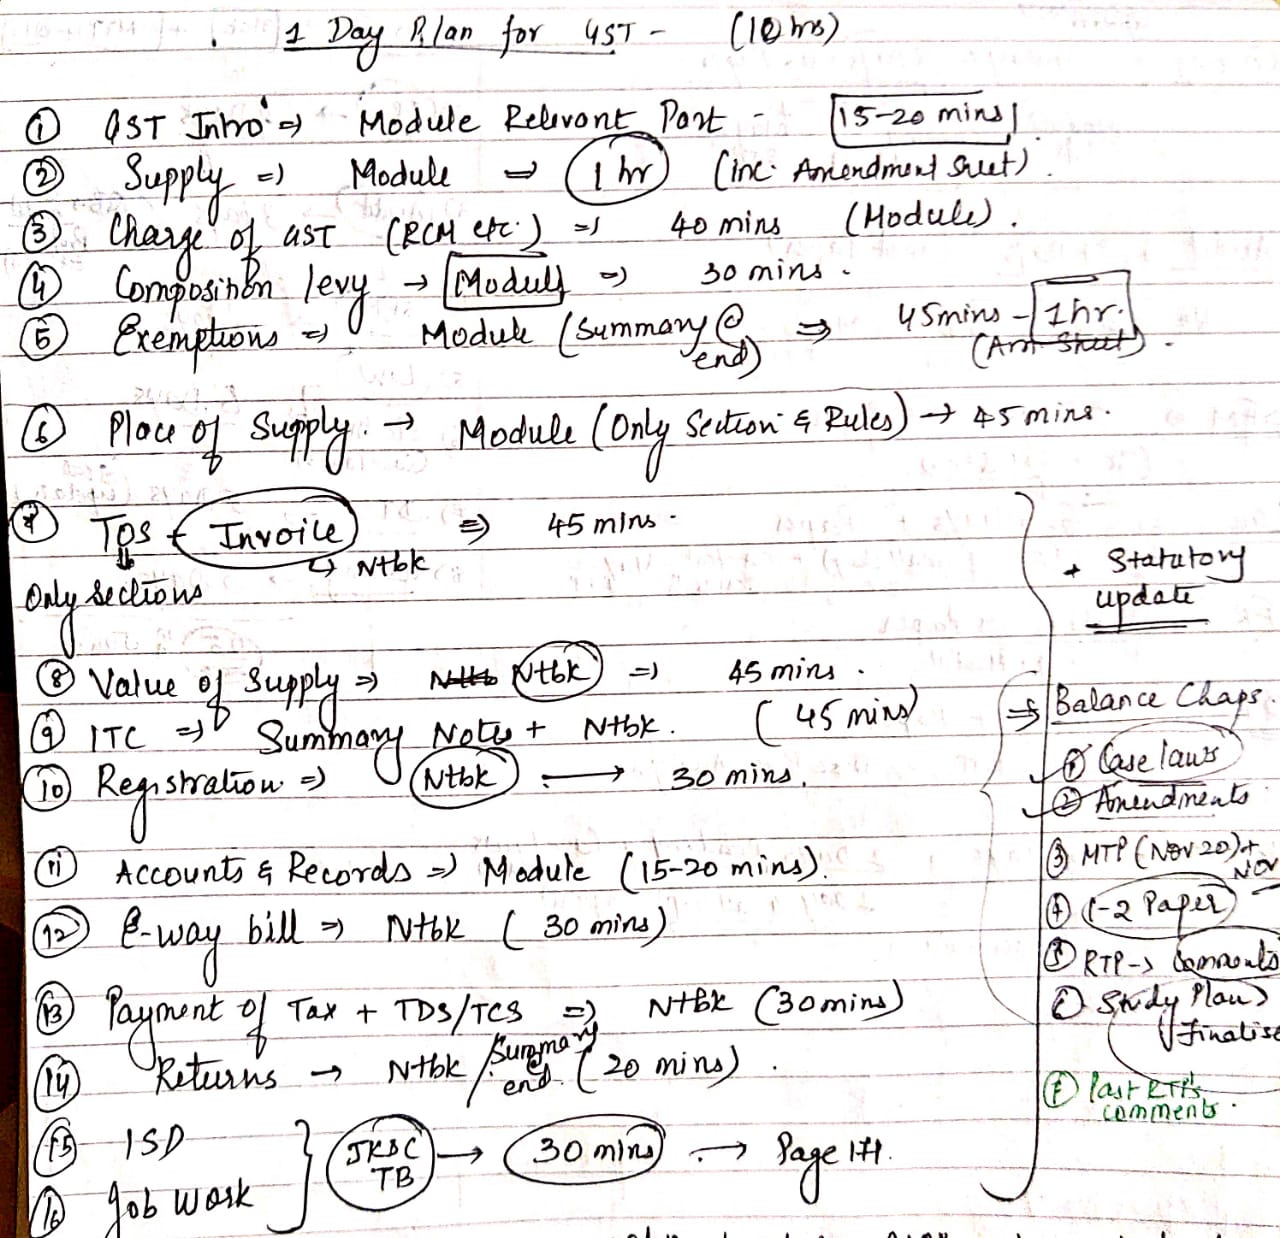 1 Day Plan for GST - (10 hrs)
① GST Intro ⇒ Module Relevant Part - 15-20 mins
② Supply ⇒ Module ⇒ 1 hr (inc. Amendment Sheet).
③ Charge of GST (RCM etc.) ⇒ 40 mins (Module).
④ Composition levy → Module ⇒ 30 mins.
⑤ Exemptions ⇒ Module (Summary @ end) ⇒ 45 mins - 1 hr.
(Am Sheet).
⑥ Place of Supply. → Module (Only Section & Rules) → 45 mins.
⑦ TOS + Invoice ⇒ 45 mins.
↳ Ntbk
Only sections
⑧ Value of Supply ⇒ Ntbk ⇒ 45 mins.
⑨ ITC ⇒ Summary Notes + Ntbk. (45 mins)
⑩ Registration ⇒ Ntbk → 30 mins.
⑪ Accounts & Records ⇒ Module (15-20 mins).
⑫ E-way bill ⇒ Ntbk (30 mins)
⑬ Payment of Tax + TDS/TCS ⇒ Ntbk (30 mins)
⑭ Returns → Ntbk / Summary end. (20 mins).
⑮ ISD
⑯ Job Work
JKSC TB → 30 mins → Page 171.
+ Statutory
update
⇒ Balance Chaps.
① Case laws
② Amendments
③ MTP (Nov 20) +
Nov
④ 1-2 Paper
⑤ RTP → Comments
⑥ Study Plan
Finalise
⑦ Past RTPs
comments.